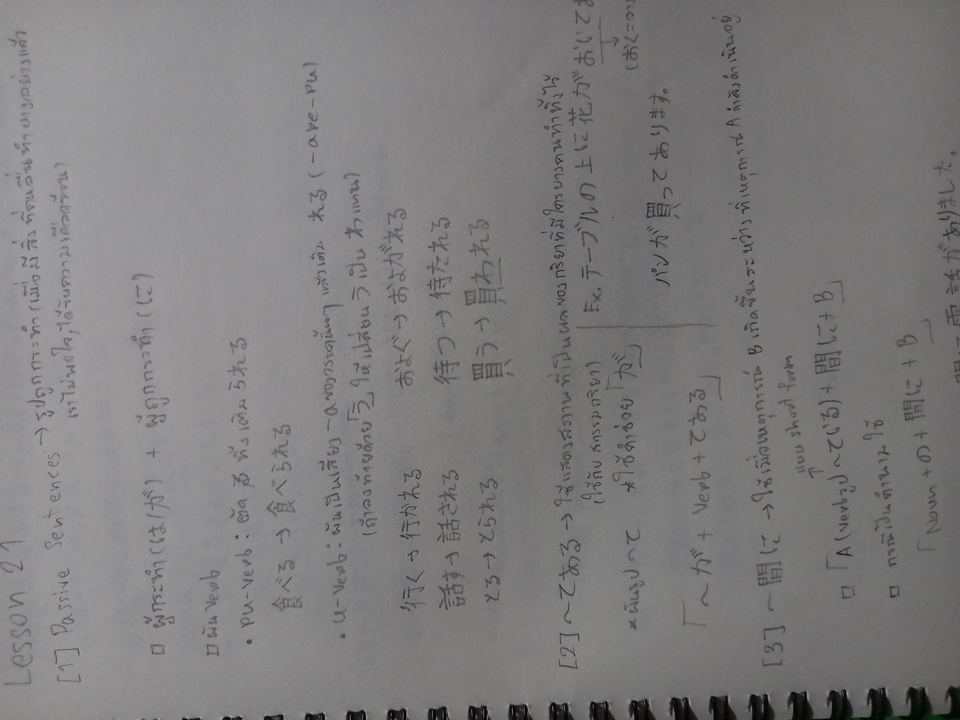 Lesson 21
[1] Passive Sentences → รูปถูกกระทำ (เมื่อมีสิ่งที่คนอื่นทำบางอย่างแล้ว
เราไม่พอใจ, ได้รับความเดือดร้อน)
□ ผู้กระทำ (は/が) + ผู้ถูกกระทำ (に)
□ ผัน verb
• ru-verb : ตัด る ทิ้งเติม られる
食べる → 食べられる
• u-verb : ผันเป็นเสียง -a แล้วเติม れる (-are-ru)
(ถ้าลงท้ายด้วย「う」ให้เปลี่ยน う เป็น わ แทน)
行く → 行かれる およぐ → およがれる
話す → 話される 待つ → 待たれる
とる → とられる 買う → 買われる
[2] ～てある → ใช้แสดงสภาพที่เป็นผลของกริยาที่มีใครบางคนทำทิ้งไว้
(ใช้กับสกรรมกริยา) Ex. テーブルの上に花がおいてあ
*ผันรูป ～て *ใช้คำช่วย「が」 (おく=วาง
「～が + verb + てある」 パンが買ってあります。
[3] ～間に → ใช้เมื่อเหตุการณ์ B เกิดขึ้นระหว่างที่เหตุการณ์ A กำลังดำเนินอยู่
แบบ short form
□「A (verbรูป ～ている) + 間に + B」
□ กรณีเป็นคำนามใช้
「Noun + の + 間に + B」
間に電話がありました。